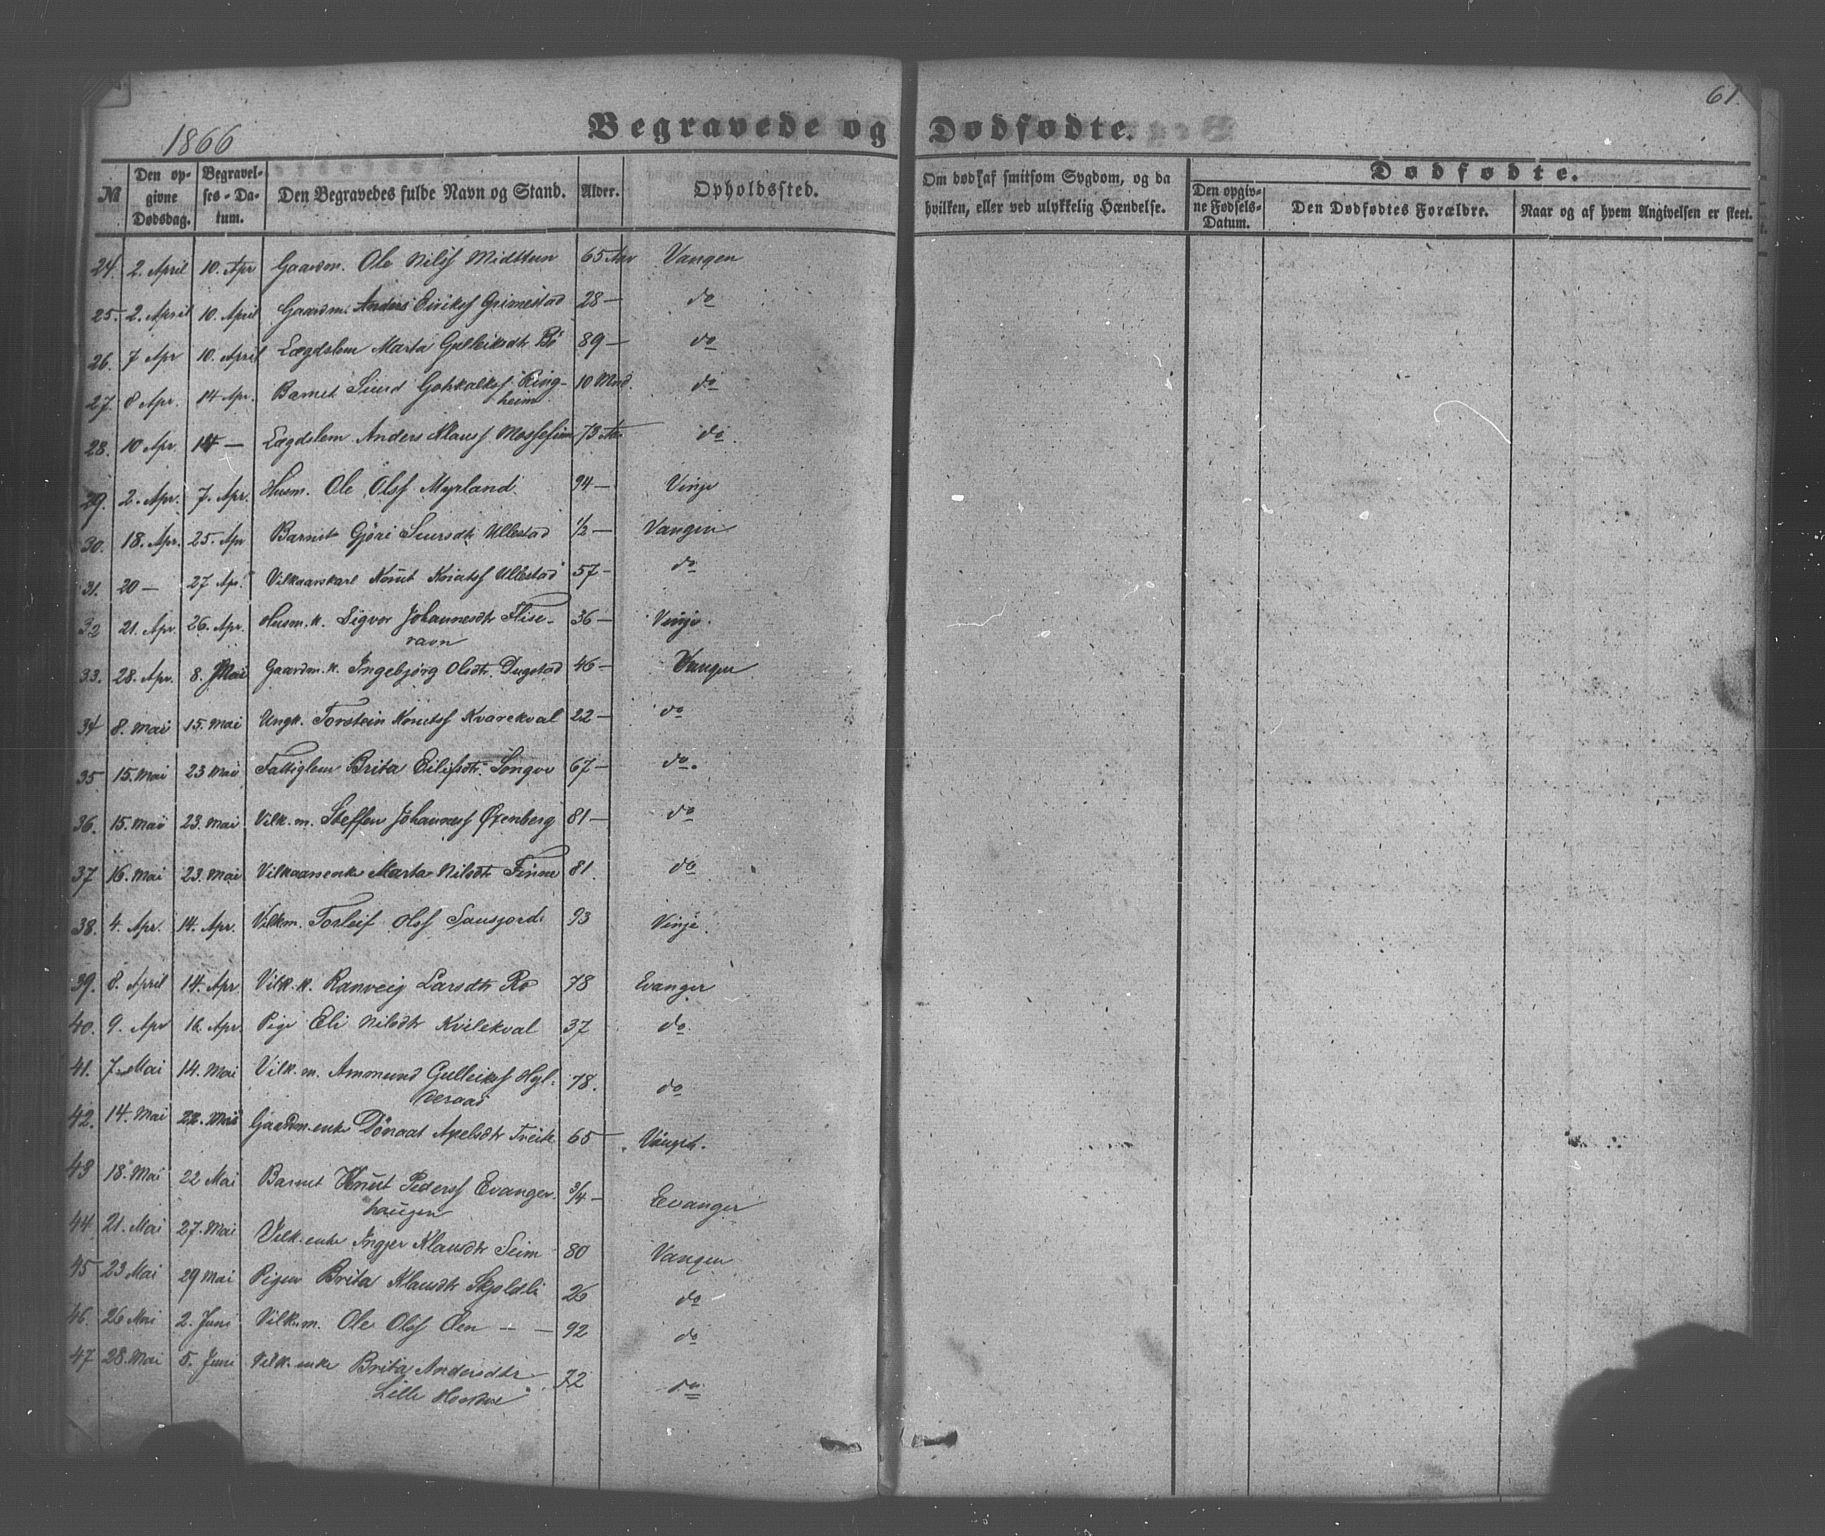 61.
1866
Begravede og Dødfødte.
№
Den opgivne Dødsdag.
Begravelses-Datum.
Den Begravedes fulde Navn og Stand.
Alder.
Opholdssted.
Om død af smitsom Sygdom, og da hvilken, eller ved ulykkelig Hændelse.
Dødfødte.
Den opgivne Fødsels-Datum.
Den Dødfødtes Forældre.
Naar og af hvem Angivelsen er skeet.
24. 2. April 10. Apr Gaardm. Ole Nilss Midttun 65 Aar Vangen
25. 2. April 10. April Gaardm. Anders Eirikss Grimestad 28 — do
26. 7 Apr 10. April Lægdslem Marta Gulleiksdtr Bø 89 — do
27. 8 Apr. 14 Apr. Barnet Siurd Gotskalkss Ring- 10 Mnd. do
heim
28. 10 Apr. 14 — Lægdslem Anders Klauss 73 Aar do
29. 2. Apr. 7. Apr. Husm. Ole Olsf Myrland 94 — Vinje
30. 18. Apr. 25. Apr Barnet Gjøri Siursdtr Ullestad 1/2 — Vangen
31. 20 — 27 Apr. Vilkaarskarl Knut Knutsf Ullestad 57 — do
32 21. Apr. 26. Apr. Husm. k. Sigvor Johannesdtr Flise- 36 — Vinje.
ravn
33. 28. Apr. 8. Mai Gaardm. k. Ingebjørg Olsdtr. Dugstad 46 — Vangen
34 8. Mai 15. Mai Ungk. Torstein Knutsf Kvarekval 22 — do
35 15. Mai 23 Mai Fattiglem Brita Eilifsdtr. Songve 67 — do.
36. 15. Mai 23. Mai Vilk. m. Steffen Johannesf Øxenberg 81 — do
37 16. Mai 23. Mai Vilkaarsenke Marta Nilsdtr Finne 81. do
38. 4. Apr. 14. Apr. Vilkm. Torleif Olsf 93 Vinje.
39. 8. April 14. Apr. Vilk. k. Ranveig Larsdtr Ro 78 Evanger
40. 9. Apr 16. Apr. Pige Eli Nilsdtr Kvilekval 37 do.
41. 7. Mai 14. Mai Vilk. m. Ammund Gulleiksf Hyl- 78. do
deraas
42. 14. Mai 22. Mai Gaardm. enke Dønaat Apelsdtr Tveite 65 — Vangen.
43 18. Mai 22 Mai Barnet Knut Pedersf Evanger- 3/4 — Evanger
haugen
44 21. Mai 27. Mai Vilk. enke Ingjer Klausdtr Seim 80 Vangen
45 23 Mai 29 Mai Pigen Brita Klausdtr Skjoldli 26 do
46. 26 Mai 2. Juni Vilk. m. Ole Olsf Øen — — 92 do
47 28. Mai 5. Juni Vilk. enke Brita Andersdtr 72 do
Lille